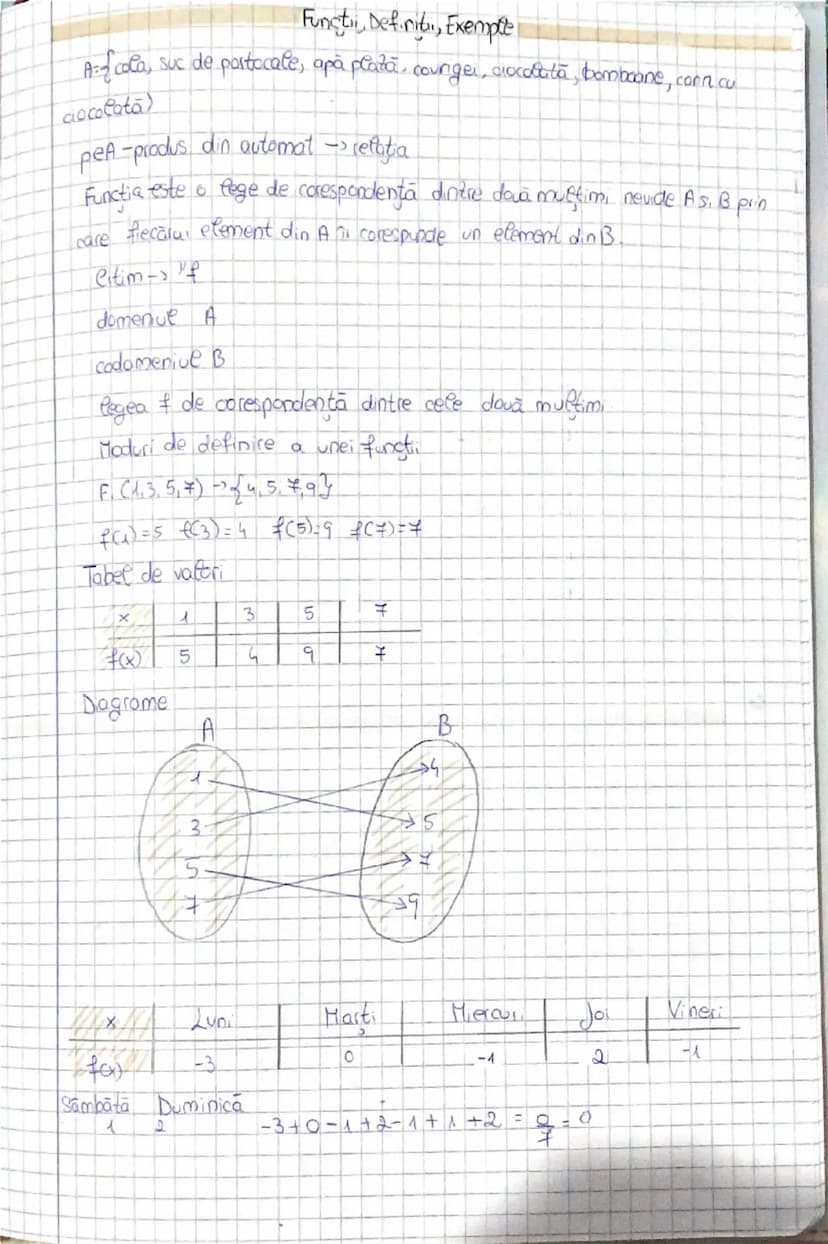 Funcții, Definiții, Exemple
A={cola, suc de portocale, apă plată, covrigei, ciocolată, bomboane, corn cu
ciocolată)
p∈A-produs din automat → relația
Funcția este o lege de corespondență dintre două mulțimi nevide A și B prin
care fiecărui element din A îi corespunde un element din B.
citim → "f
domeniul A
codomeniul B
legea f de corespondență dintre cele două mulțimi
Moduri de definire a unei funcții
F. (1,3,5,7) → {4,5,7,9}
f(1)=5 f(3)=4 f(5)=9 f(7)=7
Tabel de valori
x 1 3 5 7
f(x) 5 4 9 7
Dagrame
A B
1 4
3 5
5 7
7 9
x Luni Marți Miercuri Joi Vineri
f(x) -3 0 -1 2 -1
Sâmbătă Duminică
1 2 -3+0-1+2-1+1+2 = 0/7 = 0